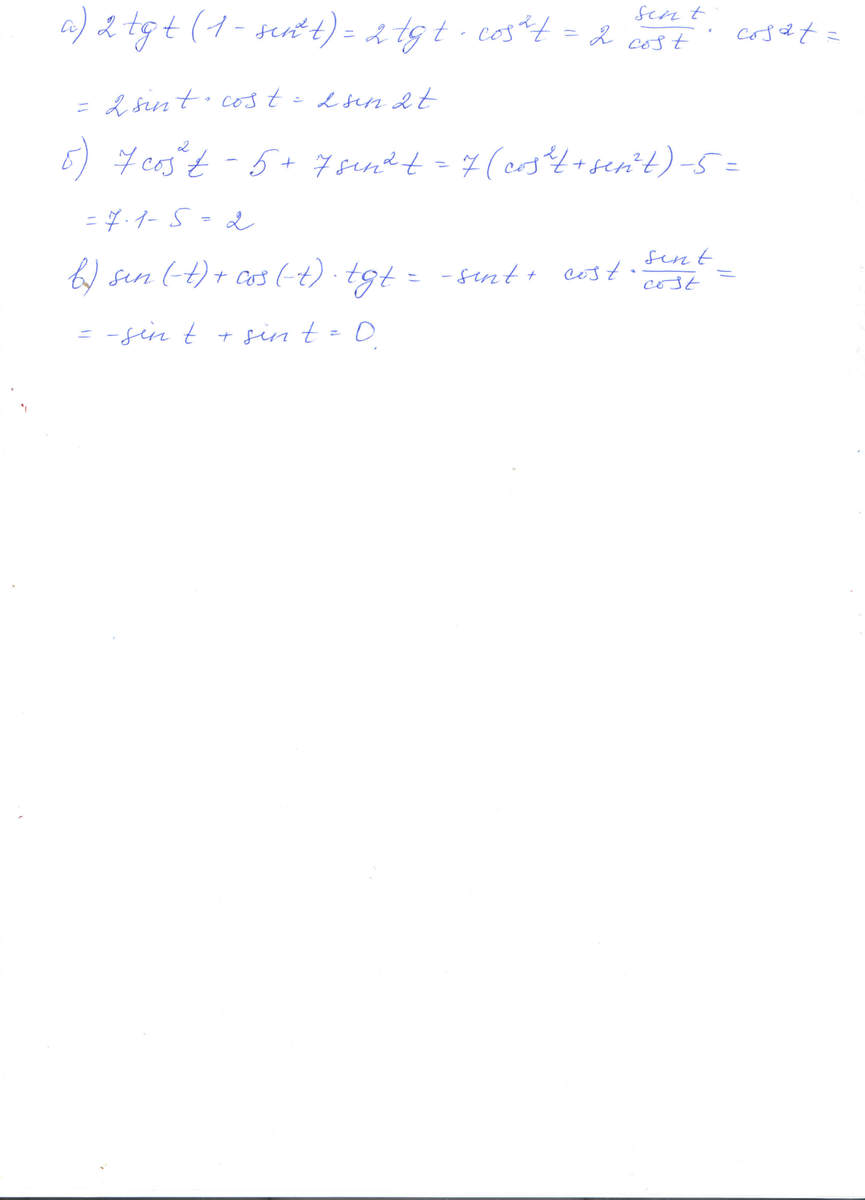 а) 2 tg t (1 - sin²t) = 2 tg t · cos²t = 2 sin t / cos t · cos 2t =
= 2 sin t · cos t = 2 sin 2t
б) 7 cos²t - 5 + 7 sin²t = 7 (cos²t + sin²t) - 5 =
= 7 · 1 - 5 = 2
в) sin (-t) + cos (-t) · tg t = - sin t + cos t · sin t / cos t =
= - sin t + sin t = 0.